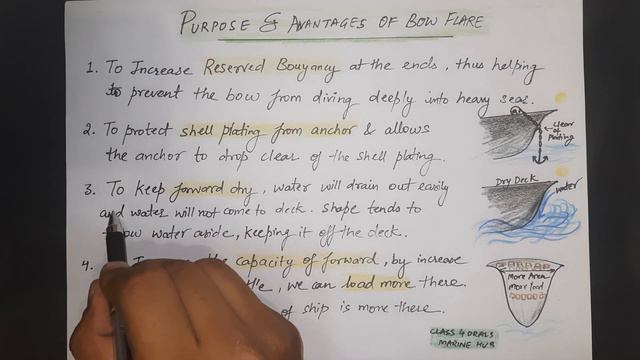 PURPOSE & AVANTAGES OF BOW FLARE
1. To Increase Reserved Bouyancy at the ends, thus helping
to prevent the bow from diving deeply into heavy seas.
2. To protect shell plating from anchor & allows
the anchor to drop clear of the shell plating.
clear of Plating
3. To keep forward dry, water will drain out easily
and water will not come to deck. Shape tends to
water aside, keeping it off the deck.
Dry Deck
water
4. the capacity of forward, by increase
, we can load more there.
of ship is more there.
More Area
More load
CLASS 4 ORALS
MARINE HUB